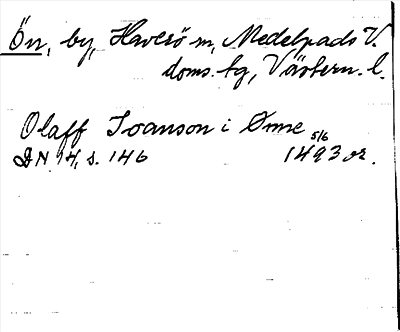 Ön, by, Haverö sn, Medelpads V.
doms. tg, Västern. l.
Olaff Joanson i Ønne 5/6
DN 14, s. 146 1493 or.